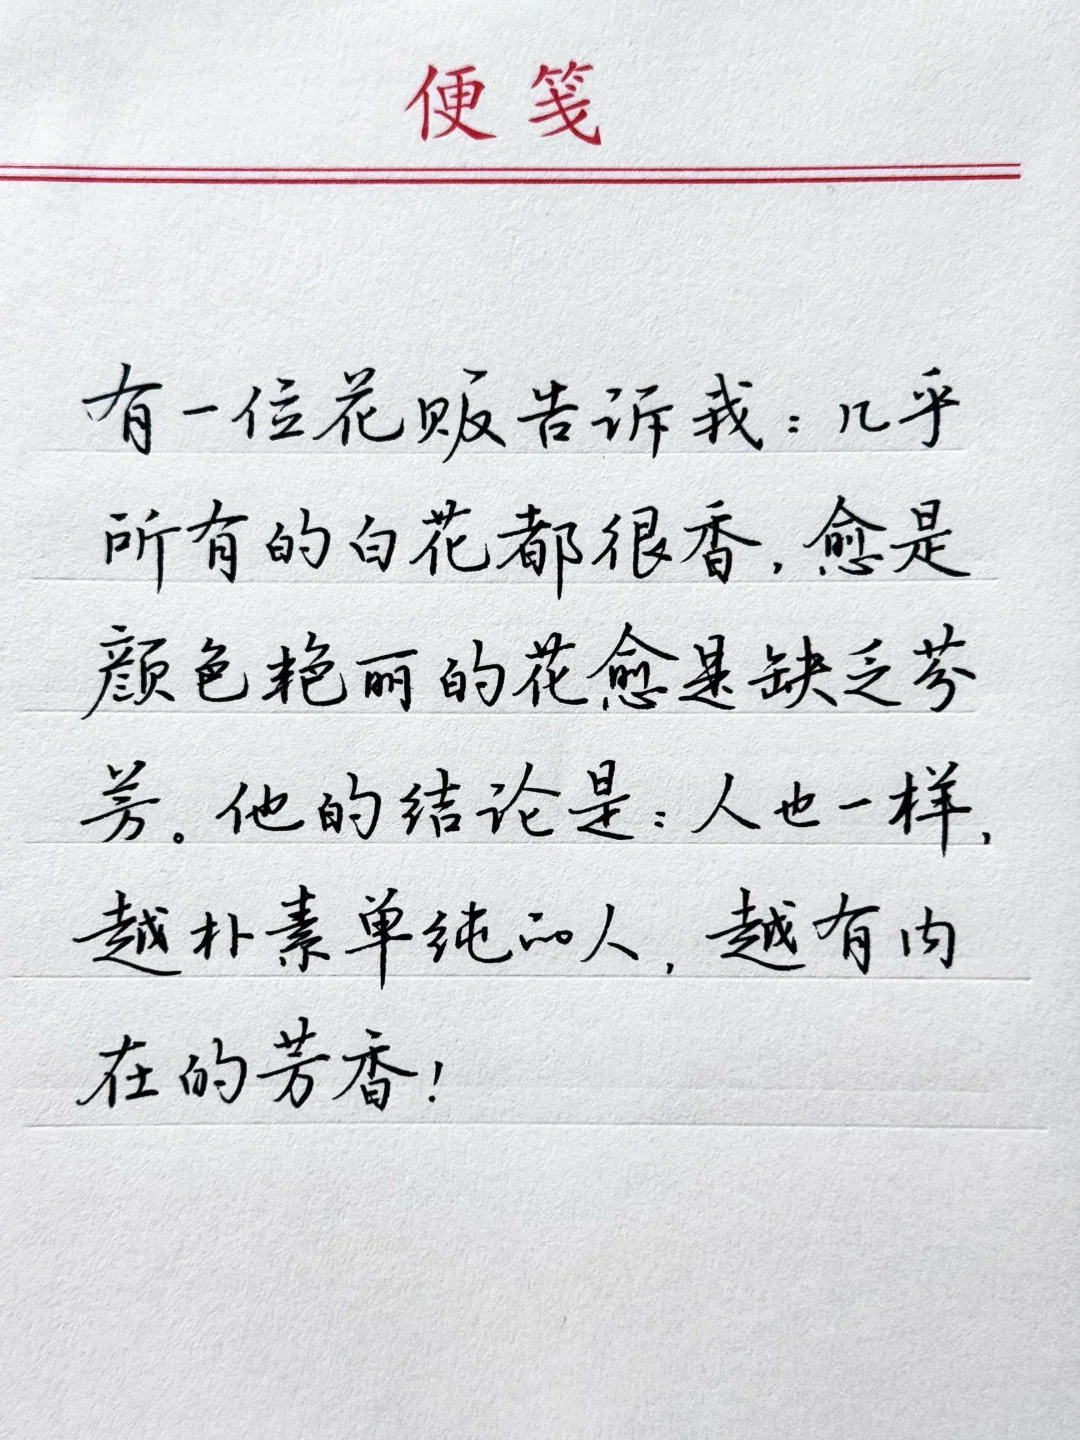 便笺
有一位花贩告诉我：几乎
所有的白花都很香，愈是
颜色艳丽的花愈是缺乏芬
芳。他的结论是：人也一样，
越朴素单纯的人，越有内
在的芳香！